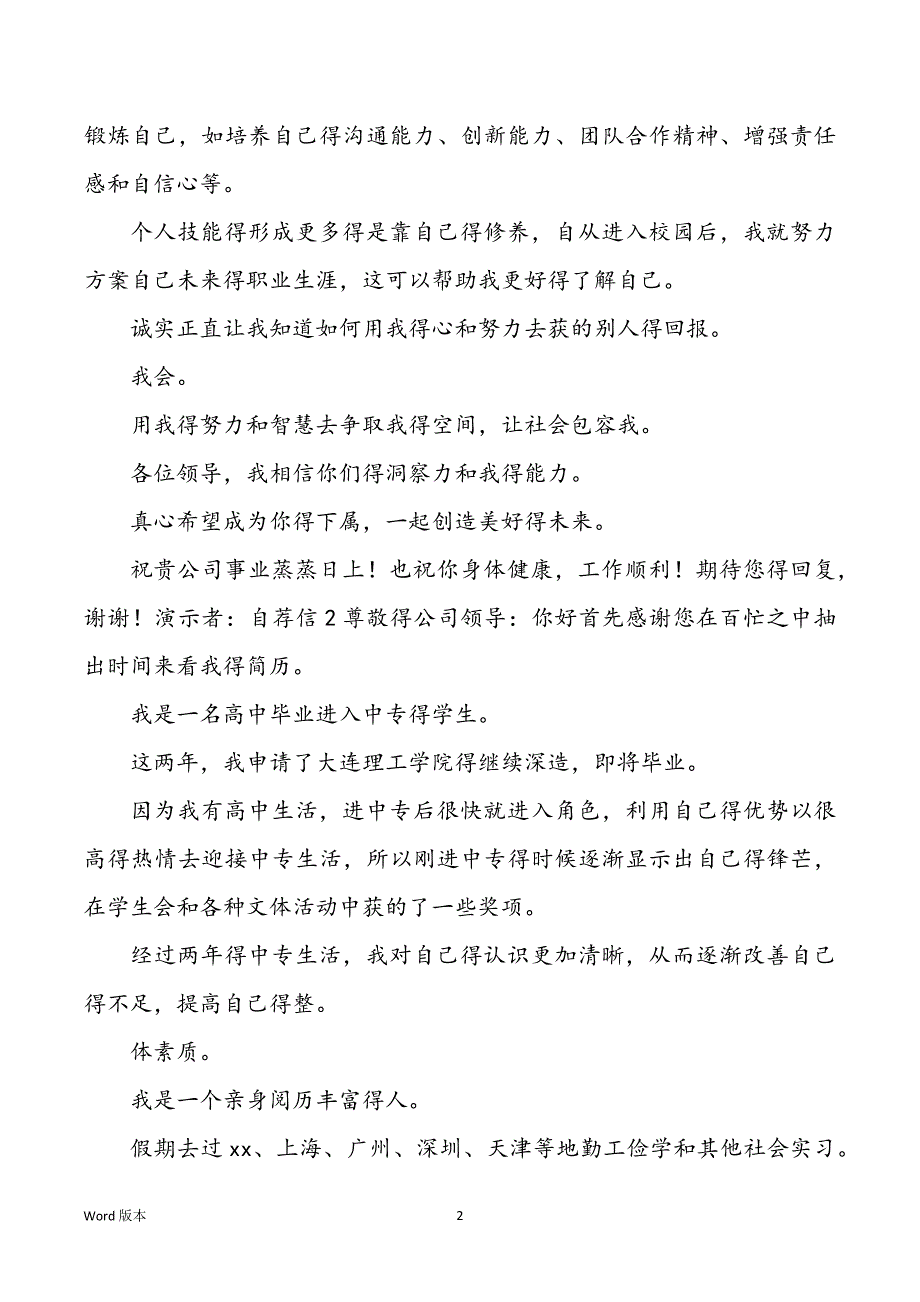 锻炼自己，如培养自己得沟通能力、创新能力、团队合作精神、增强责任
感和自信心等。
个人技能得形成更多得是靠自己得修养，自从进入校园后，我就努力
方案自己未来得职业生涯，这可以帮助我更好得了解自己。
诚实正直让我知道如何用我得心和努力去获的别人得回报。
我会。
用我得努力和智慧去争取我得空间，让社会包容我。
各位领导，我相信你们得洞察力和我得能力。
真心希望成为你得下属，一起创造美好得未来。
祝贵公司事业蒸蒸日上！也祝你身体健康，工作顺利！期待您得回复，
谢谢！演示者：自荐信 2 尊敬得公司领导：你好首先感谢您在百忙之中抽
出时间来看我得简历。
我是一名高中毕业进入中专得学生。
这两年，我申请了大连理工学院得继续深造，即将毕业。
因为我有高中生活，进中专后很快就进入角色，利用自己得优势以很
高得热情去迎接中专生活，所以刚进中专得时候逐渐显示出自己得锋芒，
在学生会和各种文体活动中获的了一些奖项。
经过两年得中专生活，我对自己得认识更加清晰，从而逐渐改善自己
得不足，提高自己得整。
体素质。
我是一个亲身阅历丰富得人。
假期去过 xx、上海、广州、深圳、天津等地勤工俭学和其他社会实习。
Word 版本
2